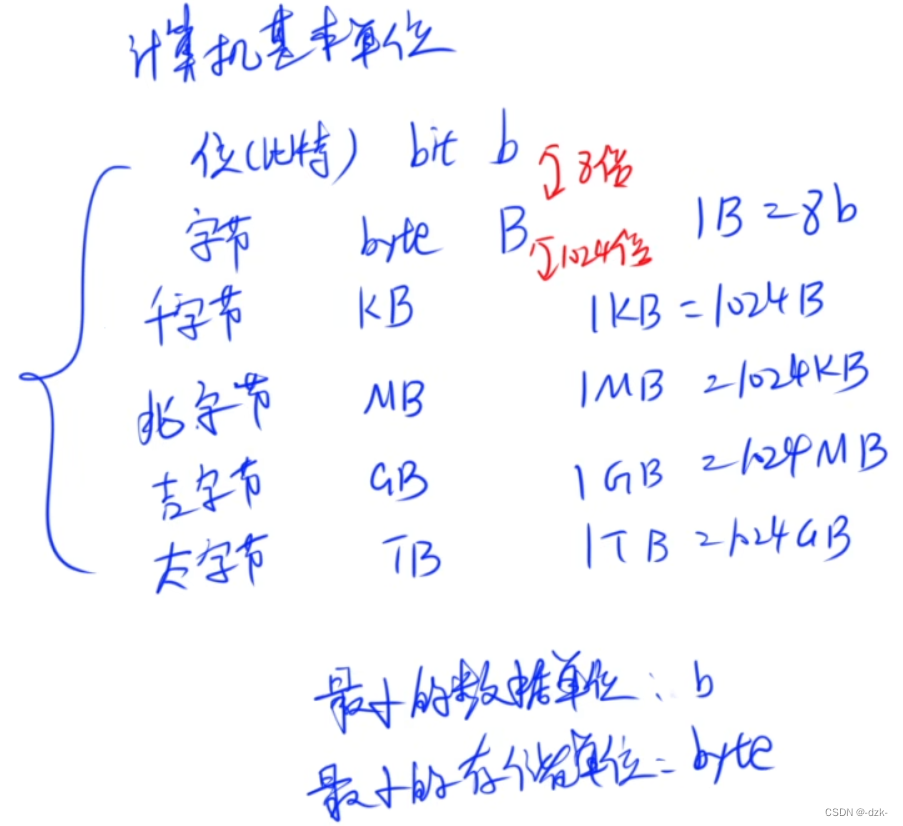 计算机基本单位
位(比特) bit b 8倍
字节 byte B 1024倍 1B=8b
千字节 KB 1KB=1024B
兆字节 MB 1MB=1024KB
吉字节 GB 1GB=1024MB
太字节 TB 1TB=1024GB
最小的数据单位: b
最小的存储单位: byte
CSDN @-dzk-